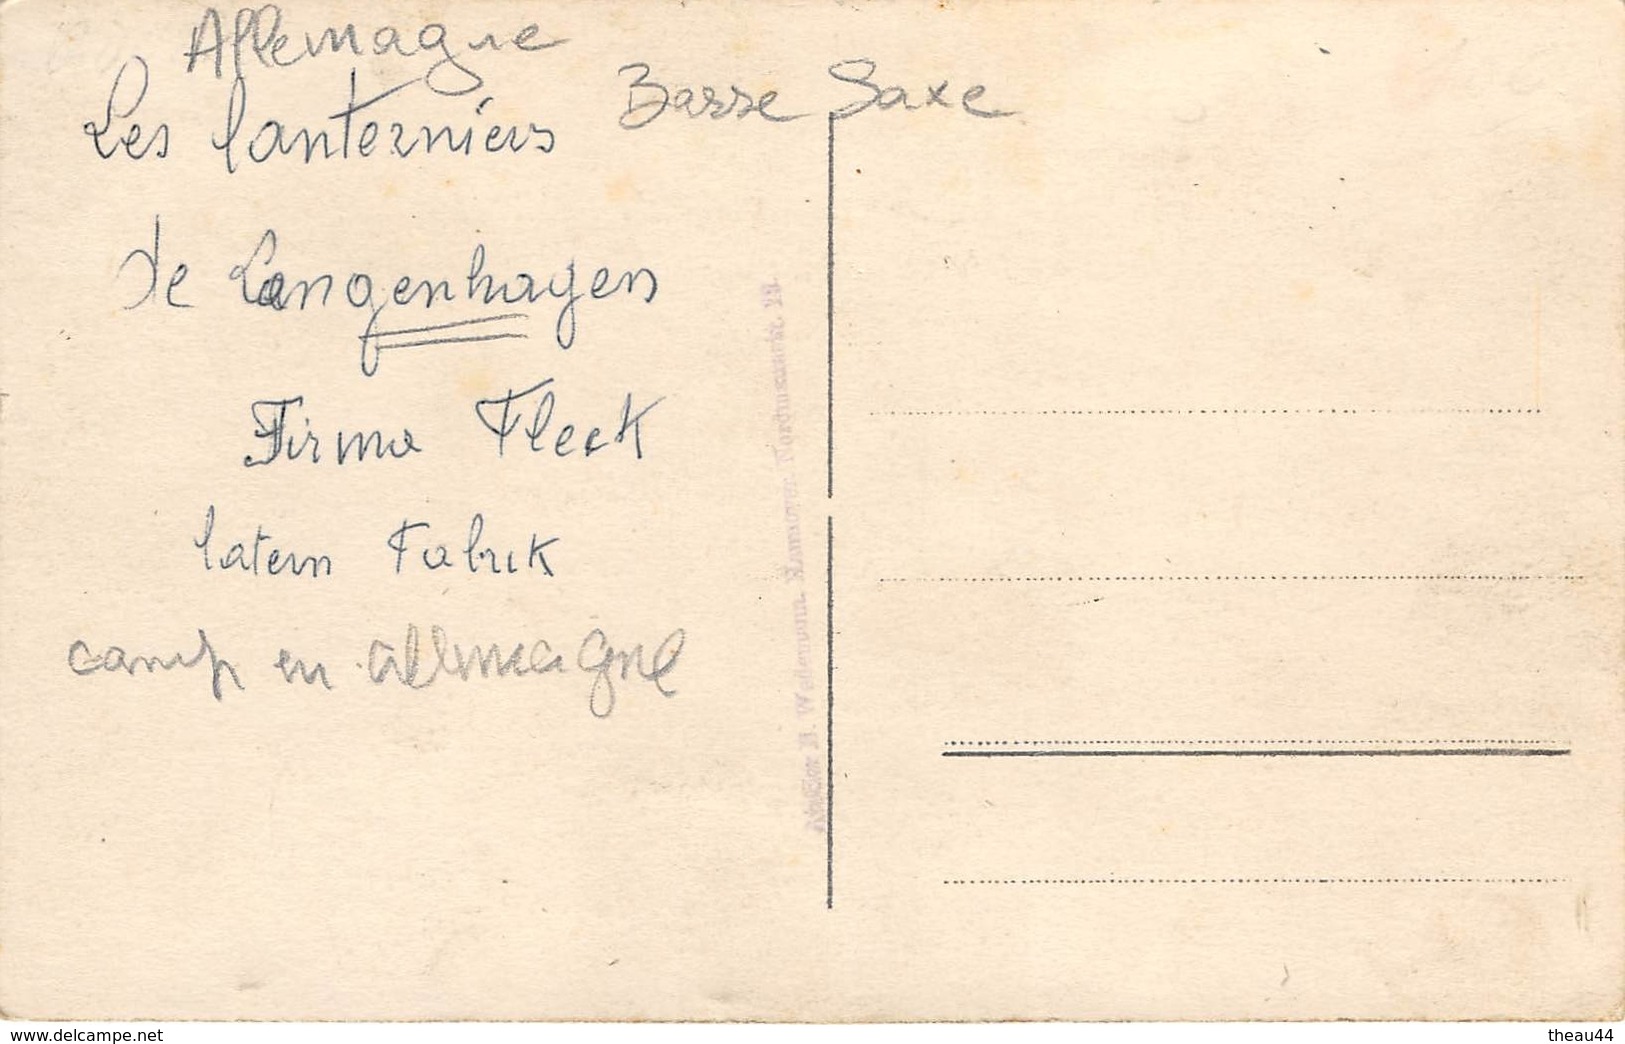 Allemagne
Basse Saxe
Les lanterniers
de Langenhagen
Firma Fleck
latern Fabrik
camp en allemagne
Atelier H. Hannover. 13.
www.delcampe.net
theau44